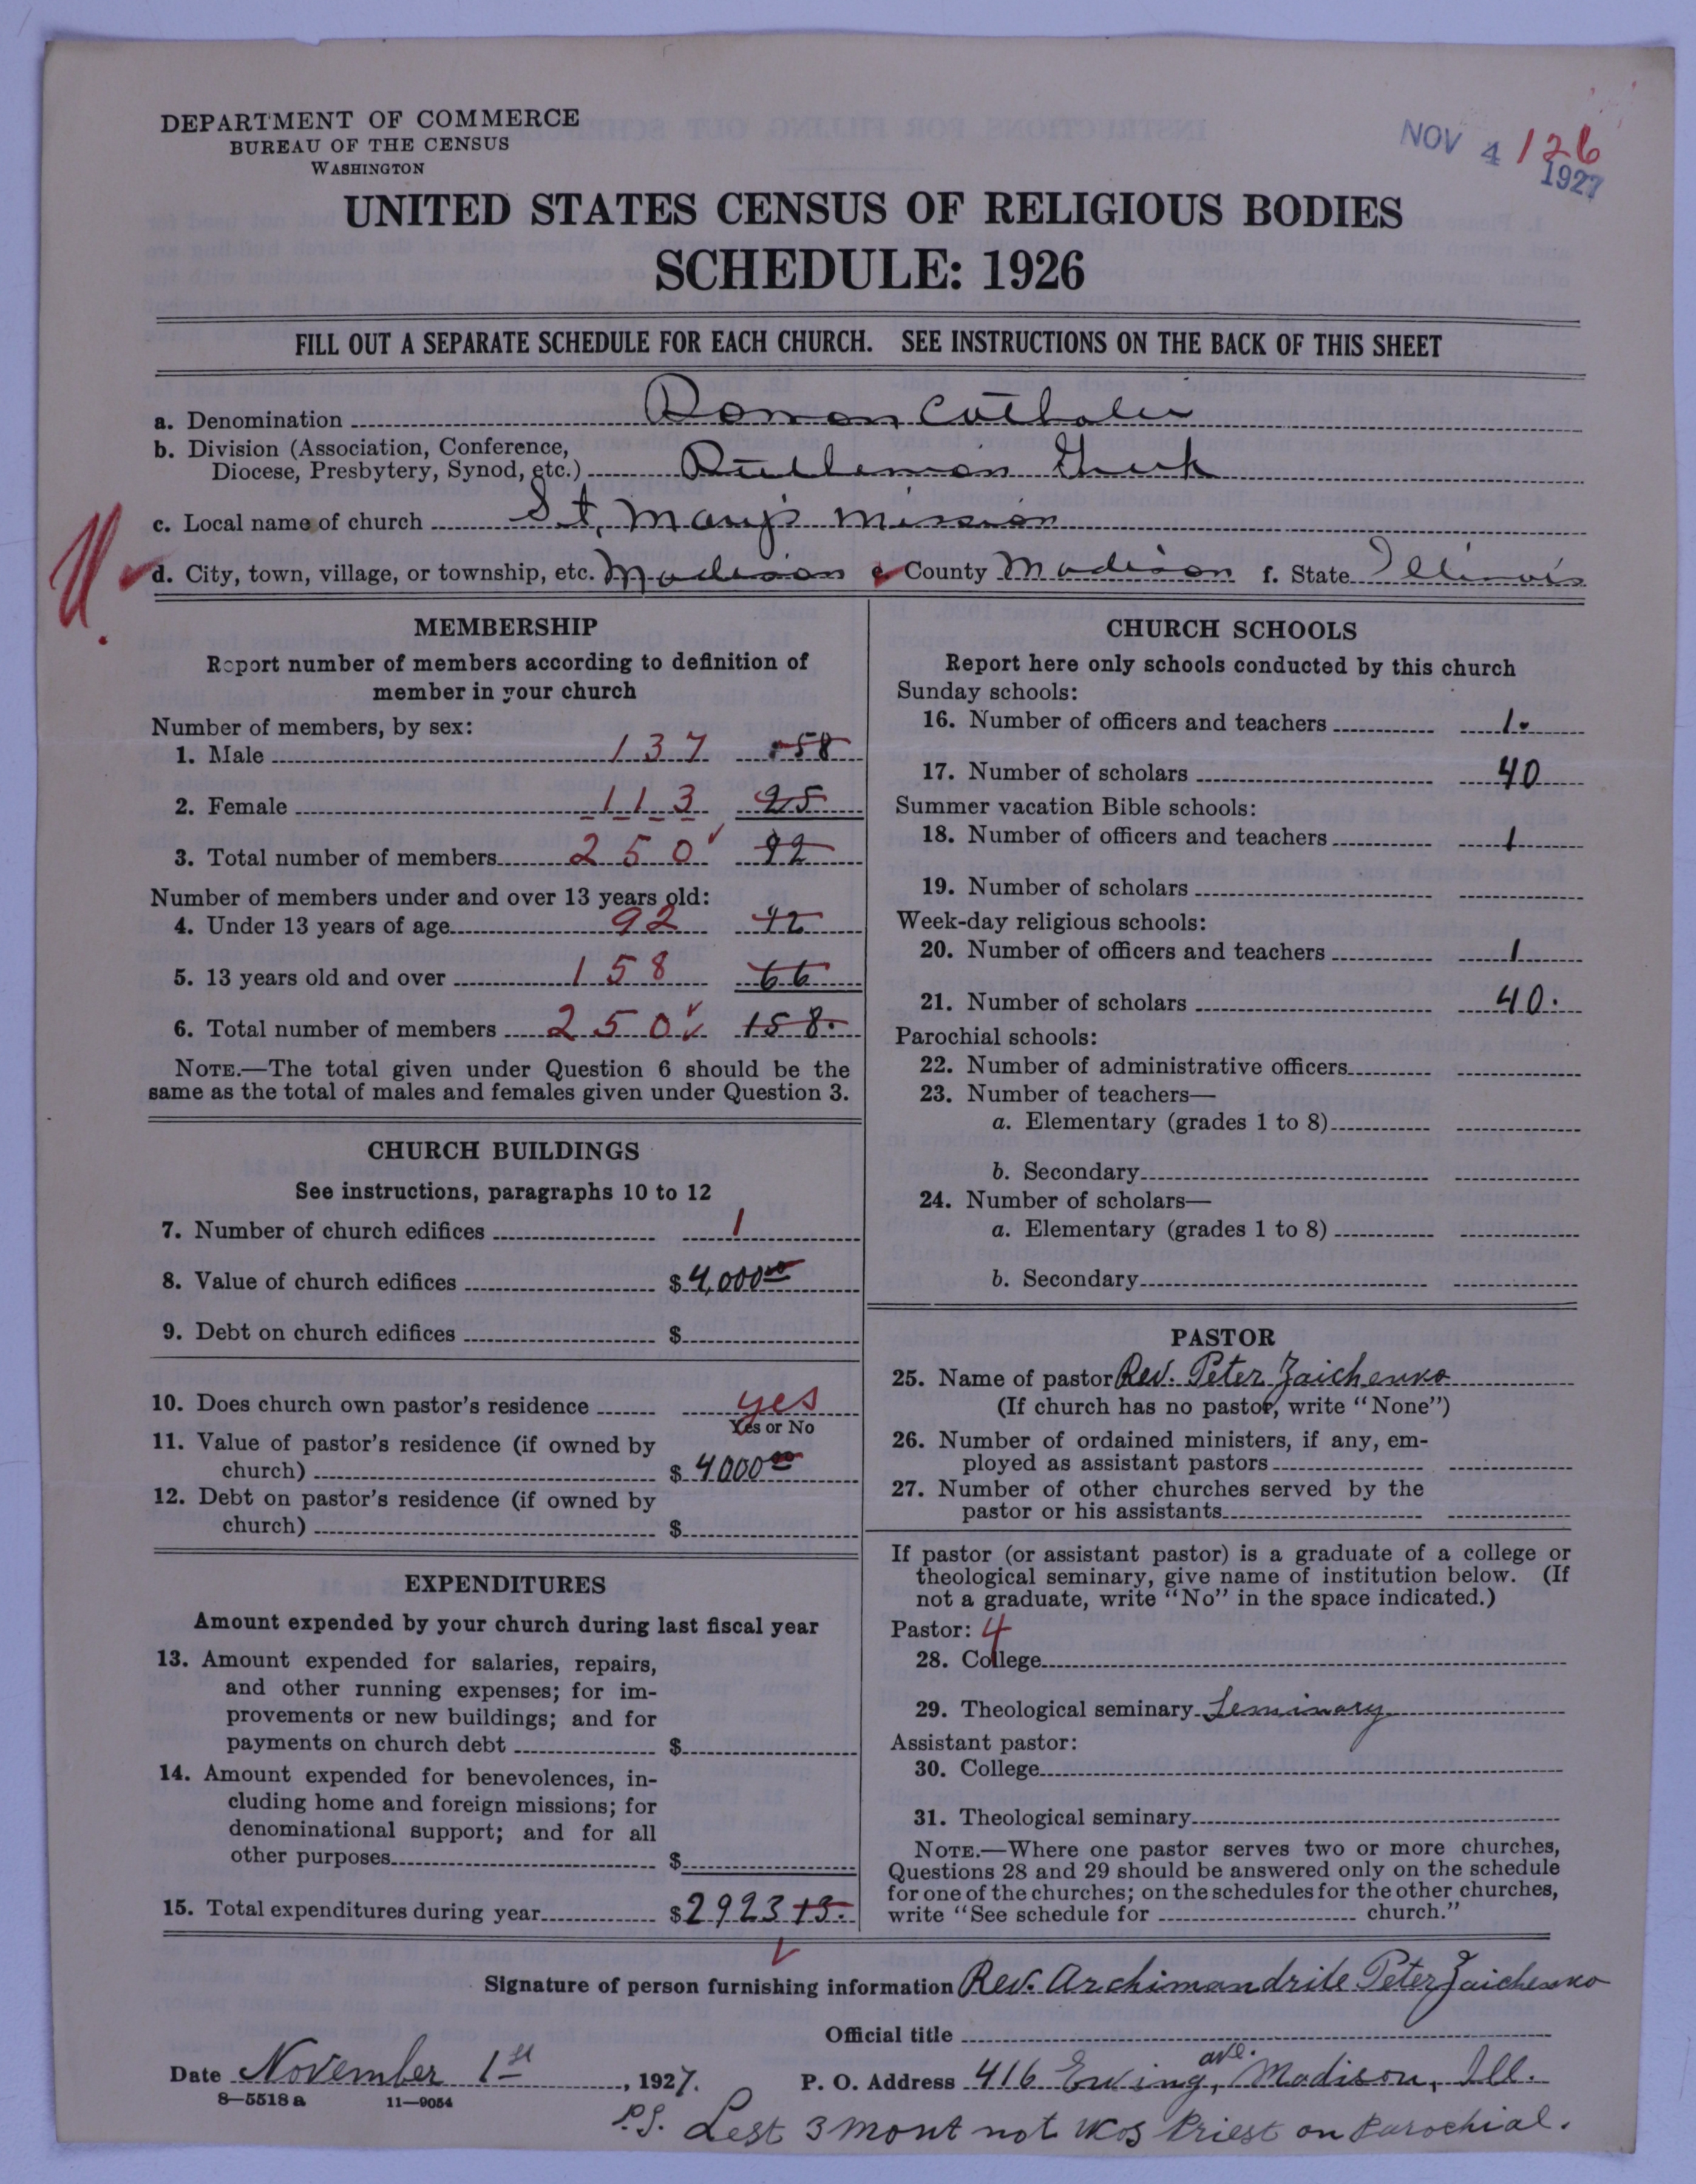 DEPARTMENT OF COMMERCE
BUREAU OF THE CENSUS
WASHINGTON
NOV 4 1927
126
UNITED STATES CENSUS OF RELIGIOUS BODIES
SCHEDULE: 1926
FILL OUT A SEPARATE SCHEDULE FOR EACH CHURCH. SEE INSTRUCTIONS ON THE BACK OF THIS SHEET
a. Denomination Roman Catholic
b. Division (Association, Conference,
Diocese, Presbytery, Synod, etc.) Greek
c. Local name of church St. Mary's Mission
d. City, town, village, or township, etc. Madison e. County Madison f. State Illinois
MEMBERSHIP
Report number of members according to definition of
member in your church
Number of members, by sex:
1. Male 137 58
2. Female 113 25
3. Total number of members 250 92
Number of members under and over 13 years old:
4. Under 13 years of age 92 42
5. 13 years old and over 158 66
6. Total number of members 250 158.
NOTE.—The total given under Question 6 should be the
same as the total of males and females given under Question 3.
CHURCH BUILDINGS
See instructions, paragraphs 10 to 12
7. Number of church edifices 1
8. Value of church edifices $4,000 00
9. Debt on church edifices $
10. Does church own pastor's residence yes
Yes or No
11. Value of pastor's residence (if owned by
church) $4000 00
12. Debt on pastor's residence (if owned by
church) $
EXPENDITURES
Amount expended by your church during last fiscal year
13. Amount expended for salaries, repairs,
and other running expenses; for im-
provements or new buildings; and for
payments on church debt $
14. Amount expended for benevolences, in-
cluding home and foreign missions; for
denominational support; and for all
other purposes $
15. Total expenditures during year $2923 13.
CHURCH SCHOOLS
Report here only schools conducted by this church
Sunday schools:
16. Number of officers and teachers 1.
17. Number of scholars 40
Summer vacation Bible schools:
18. Number of officers and teachers 1
19. Number of scholars
Week-day religious schools:
20. Number of officers and teachers 1
21. Number of scholars 40.
Parochial schools:
22. Number of administrative officers
23. Number of teachers—
a. Elementary (grades 1 to 8)
b. Secondary
24. Number of scholars—
a. Elementary (grades 1 to 8)
b. Secondary
PASTOR
25. Name of pastor Rev. Peter Zaichenko
(If church has no pastor, write "None")
26. Number of ordained ministers, if any, em-
ployed as assistant pastors
27. Number of other churches served by the
pastor or his assistants
If pastor (or assistant pastor) is a graduate of a college or
theological seminary, give name of institution below. (If
not a graduate, write "No" in the space indicated.)
Pastor: 4
28. College
29. Theological seminary Seminary
Assistant pastor:
30. College
31. Theological seminary
NOTE.—Where one pastor serves two or more churches,
Questions 28 and 29 should be answered only on the schedule
for one of the churches; on the schedules for the other churches,
write "See schedule for church."
Signature of person furnishing information Rev. Archimandrite Peter Zaichenko
Official title
Date November 1st, 1927.
P. O. Address 416 Ewing ave., Madison, Ill.
8—5518 a 11—9054
P.S. Lest 3 mont not wos Priest on Parochial.